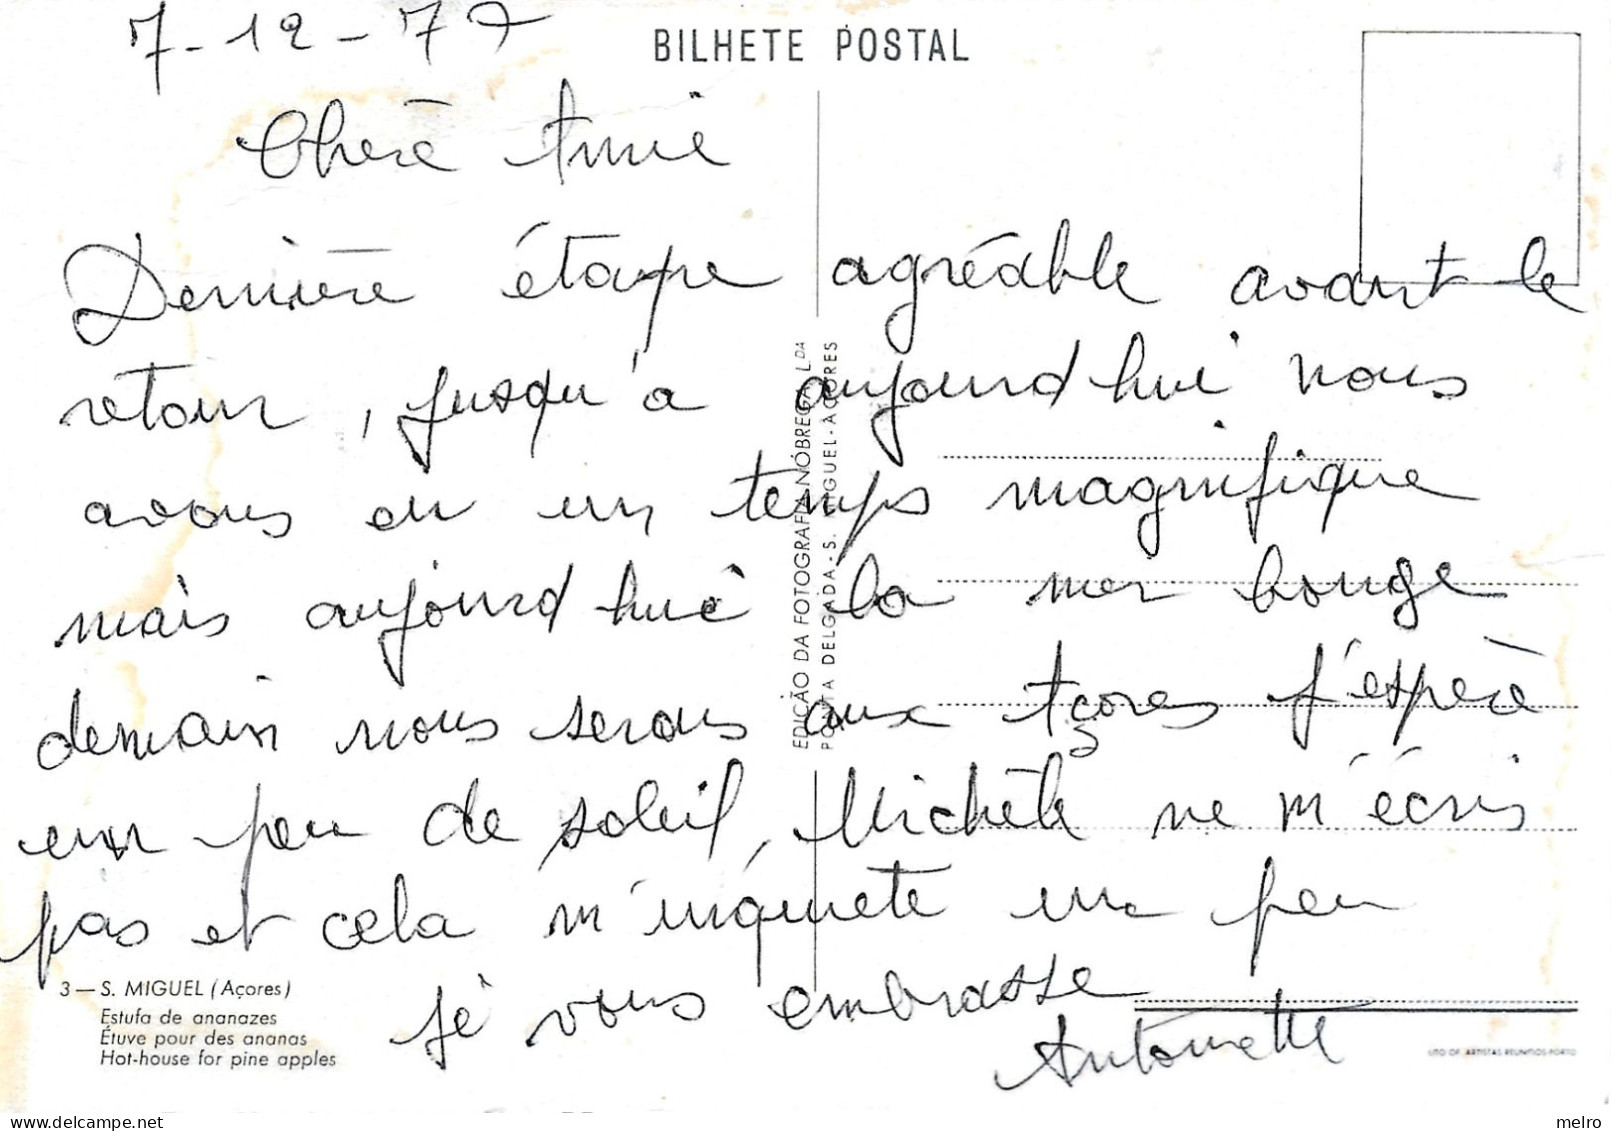 7-12-77
BILHETE POSTAL
Chère Amie
Dernière étape agréable avant le
retour, jusqu'à aujourd'hui nous
avons eu un temps magnifique
mais aujourd'hui la mer bouge
demain nous serons aux Açores j'espère
un peu de soleil, Michèle ne m'écris
pas et cela m'inquiete un peu
je vous embrasse
Antoinette
EDIÇÃO DA FOTOGRAFIA NÓBREGA, LDA
PONTA DELGADA - S. MIGUEL - AÇORES
3 — S. MIGUEL (Açores)
Estufa de ananazes
Étuve pour des ananas
Hot-house for pine apples
LITO OF. ARTISTAS REUNIDOS-PORTO
delcampe.net
melro